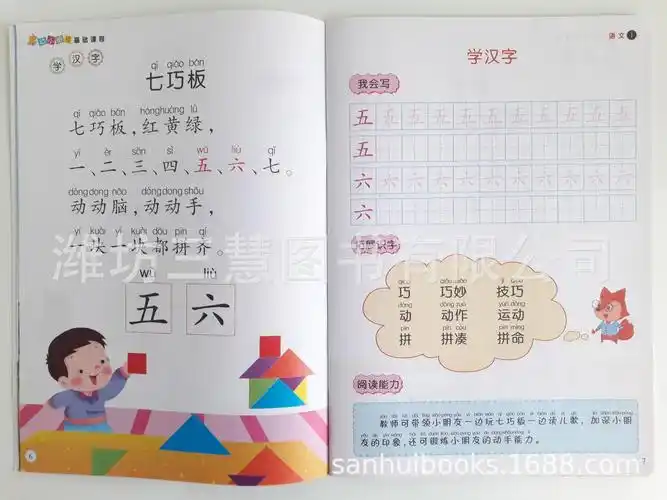 基础课程
学汉字
qī qiǎo bǎn
七巧板
qī qiǎo bǎn hónghuáng lǜ
七巧板，红黄绿，
yī èr sān sì wǔ liù qī
一、二、三、四、五、六、七。
dòngdong nǎo dòngdong shǒu
动动脑，动动手，
yí kuài yí kuài dōu pīn qí
一块一块都拼齐。
wǔ liù
五 六
6
语文
学汉字
我会写
五 五 五 五 五 五 五 五 五 五
五
六 六 六 六 六 六 六 六 六 六
六
识字
qiǎo qiǎo miào jì qiǎo
巧 巧妙 技巧
dòng dòng zuò yùn dòng
动 动作 运动
pīn pīn còu pīn mìng
拼 拼凑 拼命
阅读能力
教师可带领小朋友一边玩七巧板一边读儿歌，加深小朋
友的印象，还可锻炼小朋友的动手能力。
7
潍坊三慧图书有限公司
sanhuibooks.1688.com